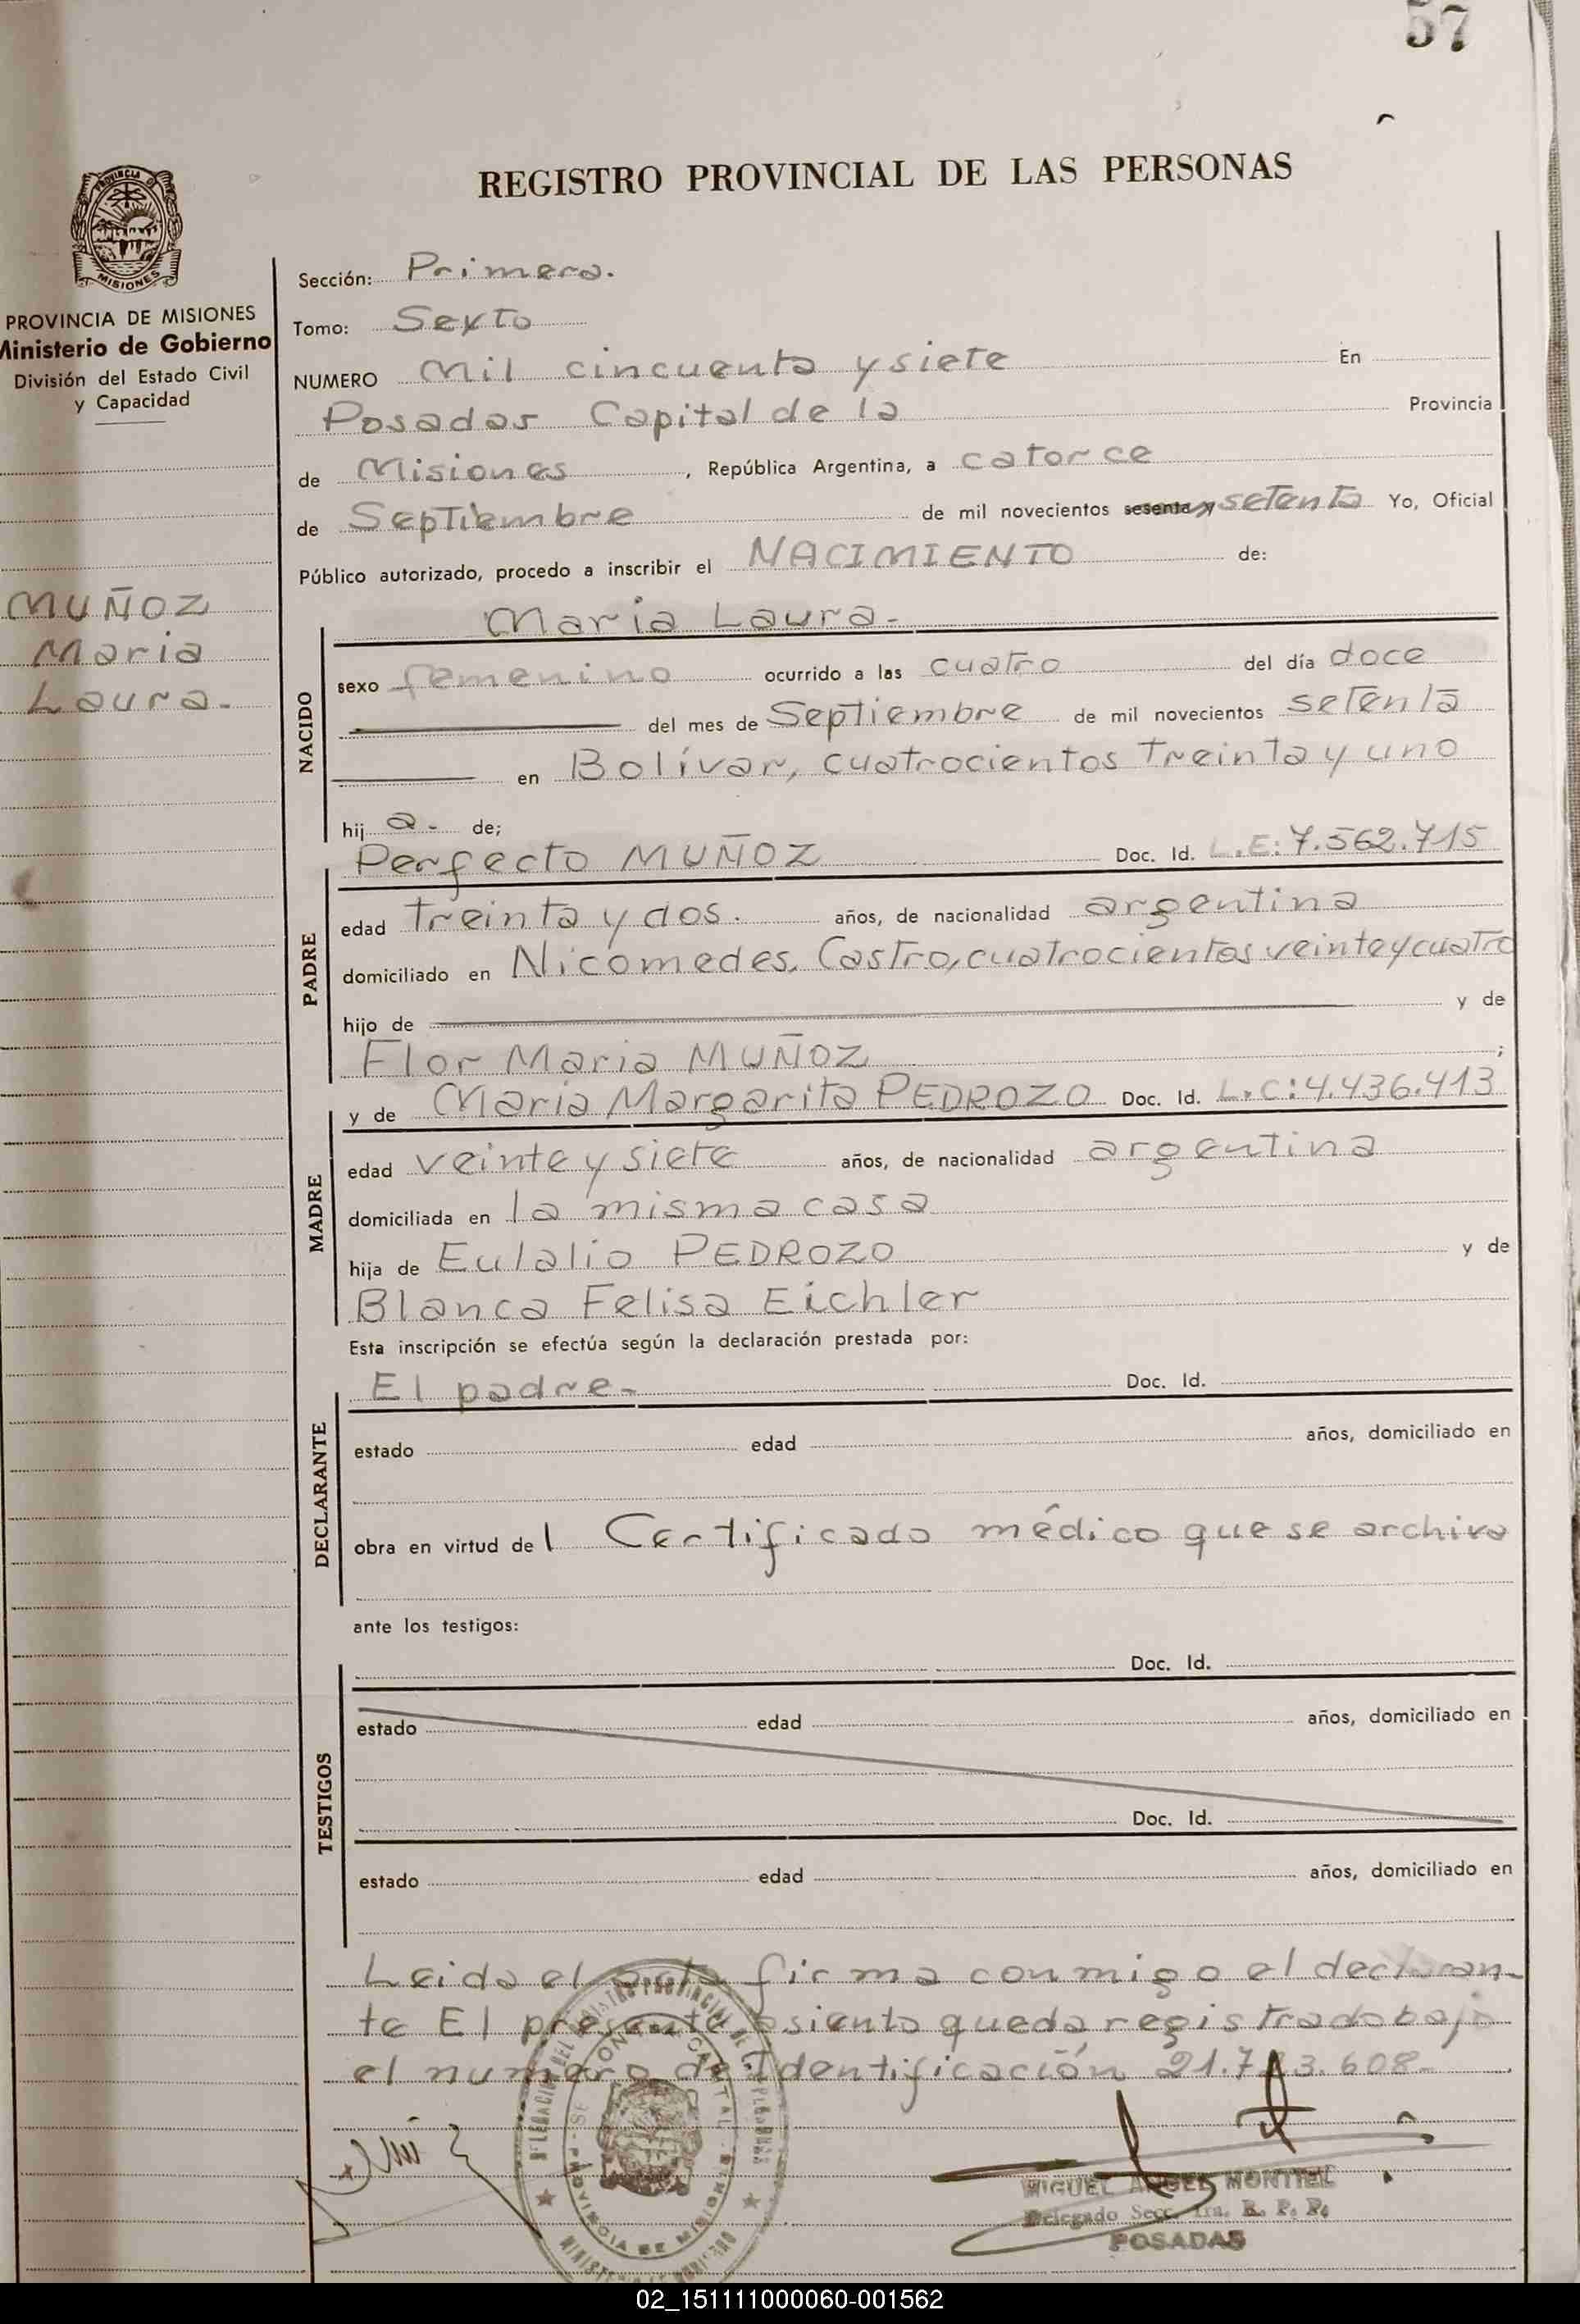 57
REGISTRO PROVINCIAL DE LAS PERSONAS
PROVINCIA DE MISIONES
Ministerio de Gobierno
División del Estado Civil
y Capacidad
MUÑOZ
Maria
Laura.-
Sección: Primera.
Tomo: Sexto
NUMERO Mil cincuenta y siete En
Posadas Capital de la Provincia
de Misiones, República Argentina, a catorce
de Septiembre de mil novecientos sesenta y setenta Yo, Oficial
Público autorizado, procedo a inscribir el NACIMIENTO de:
NACIDO
Maria Laura.-
sexo femenino ocurrido a las cuatro del día doce
del mes de Septiembre de mil novecientos setenta
en Bolívar, cuatrocientos treinta y uno
hij a.- de;
PADRE
Perfecto MUÑOZ Doc. Id. L.E: 7.562.715
edad treinta y dos. años, de nacionalidad argentina
domiciliado en Nicomedes, Castro, cuatrocientos veinte y cuatro
hijo de y de
Flor Maria MUÑOZ ;
MADRE
y de Maria Margarita PEDROZO Doc. Id. L.C: 4.436.413
edad veinte y siete años, de nacionalidad argentina
domiciliada en la misma casa
hija de Eulalio PEDROZO y de
Blanca Felisa Eichler
Esta inscripción se efectúa según la declaración prestada por:
DECLARANTE
El padre.- Doc. Id.
estado edad años, domiciliado en
obra en virtud de l Certificado médico que se archiva
ante los testigos:
TESTIGOS
Doc. Id.
estado edad años, domiciliado en
Doc. Id.
estado edad años, domiciliado en
Leida el acta firma conmigo el declaran-
te El presente asiento queda registrado bajo
el numero de Identificación
MIGUEL ANGEL MONTIEL
Delegado Secc. 1ra. R. P. P.
POSADAS
PROVINCIA DE MISIONES
02_151111000060-001562